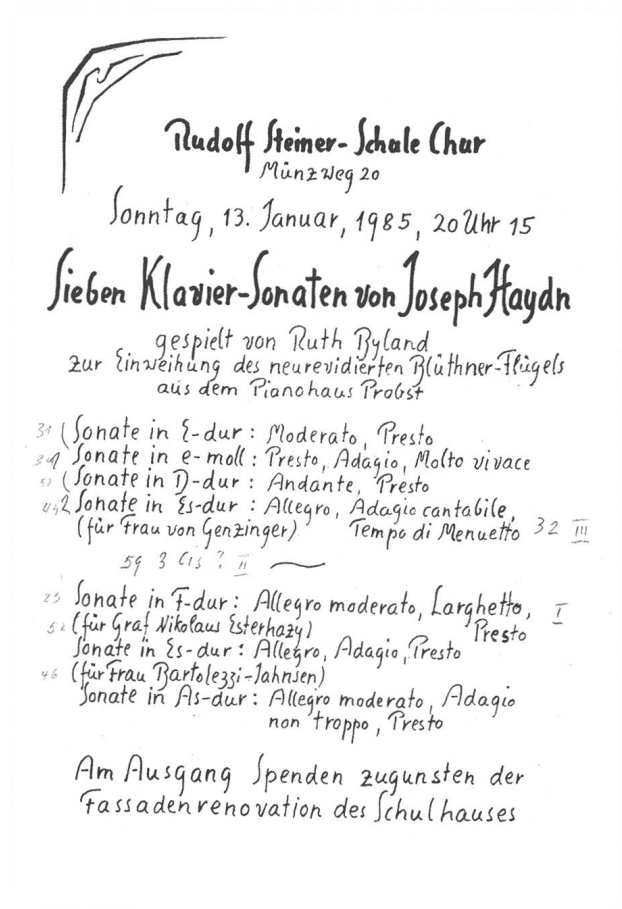 Rudolf Steiner-Schule Chur
Münzweg 20
Sonntag, 13. Januar, 1985, 20 Uhr 15
Sieben Klavier-Sonaten von Joseph Haydn
gespielt von Ruth Byland
zur Einweihung des neurevidierten Blüthner-Flügels
aus dem Pianohaus Probst
31 ( Sonate in E-dur : Moderato, Presto
34 Sonate in e-moll : Presto, Adagio, Molto vivace
51 ( Sonate in D-dur : Andante, Presto
49 Sonate in Es-dur : Allegro, Adagio cantabile,
(für Frau von Genzinger) Tempo di Menuetto 32 III
59 3 Cis ? II
23 Sonate in F-dur : Allegro moderato, Larghetto, I
52 (für Graf Nikolaus Esterhazy) Presto
Sonate in Es-dur : Allegro, Adagio, Presto
46 (für Frau Bartolezzi-Jahnsen)
Sonate in As-dur : Allegro moderato, Adagio
non troppo, Presto
Am Ausgang Spenden zugunsten der
Fassadenrenovation des Schulhauses